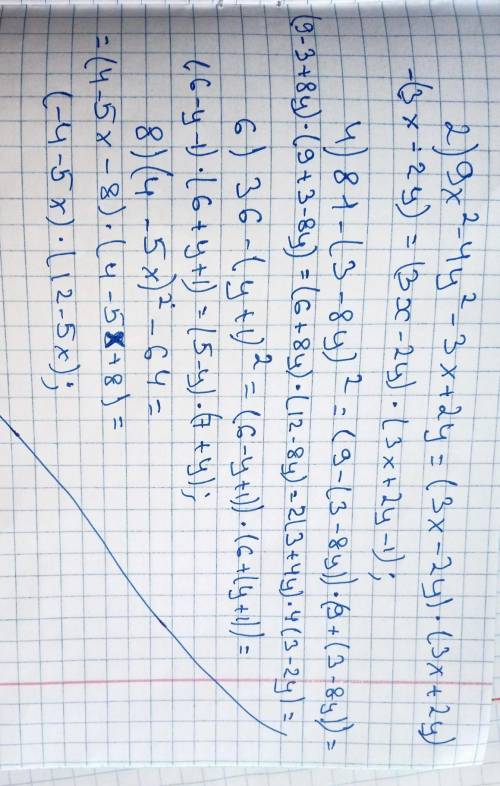 2) 9x²-4y²-3x+2y = (3x-2y)·(3x+2y)
-(3x-2y) = (3x-2y)·(3x+2y-1);
4) 81-(3-8y)² = (9-(3-8y))·(9+(3-8y)) =
(9-3+8y)·(9+3-8y) = (6+8y)·(12-8y) = 2(3+4y)·4(3-2y) =
6) 36-(y+1)² = (6-y+1))·(6+(y+1)) =
(6-y-1)·(6+y+1) = (5-y)·(7+y);
8) (4-5x)²-64 =
= (4-5x-8)·(4-5x+8) =
(-4-5x)·(12-5x);